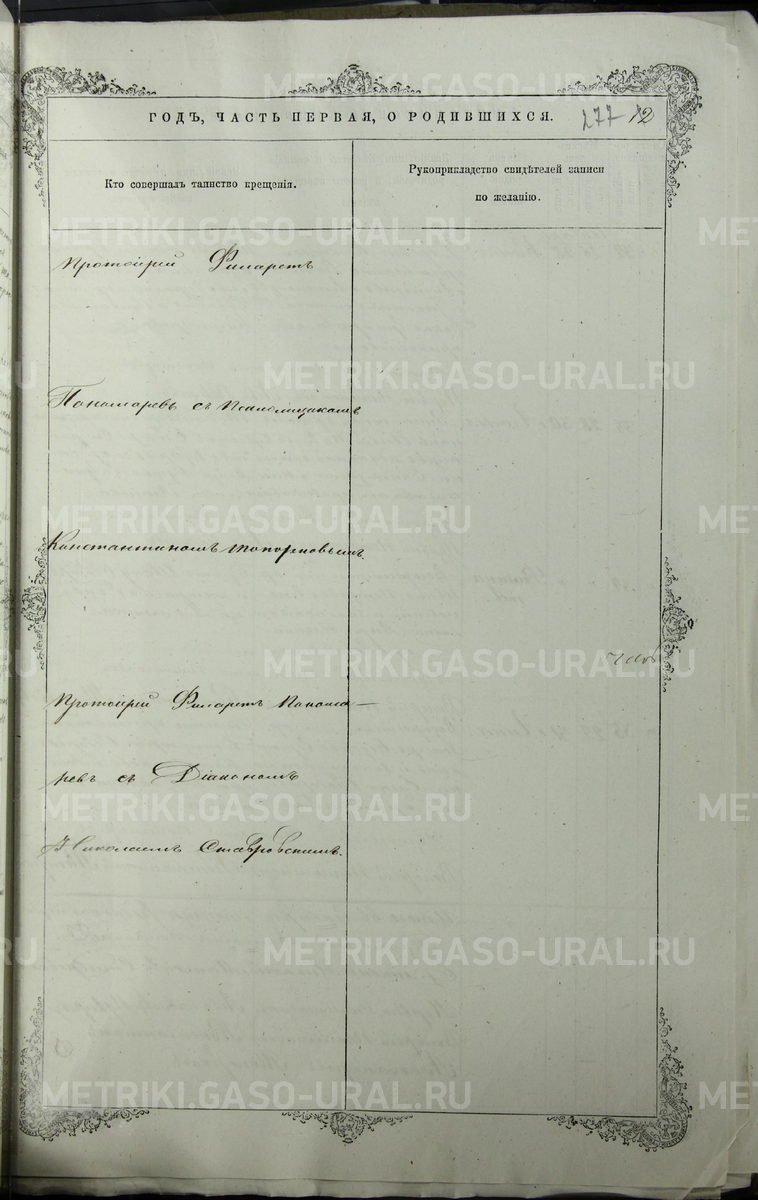 METRIKI.GASO-URAL.RU
ГОДЪ, ЧАСТЬ ПЕРВАЯ, О РОДИВШИХСЯ.
277 12
Кто совершалъ таинство крещенія.
Рукоприкладство свидѣтелей записи
по желанію.
Протоіерей Филаретъ
Пономаревъ съ Псаломщикомъ
Константиномъ Топорковымъ.
Протоіерей Филаретъ Понома—
ревъ съ Діакономъ
Николаемъ Ставровскимъ.